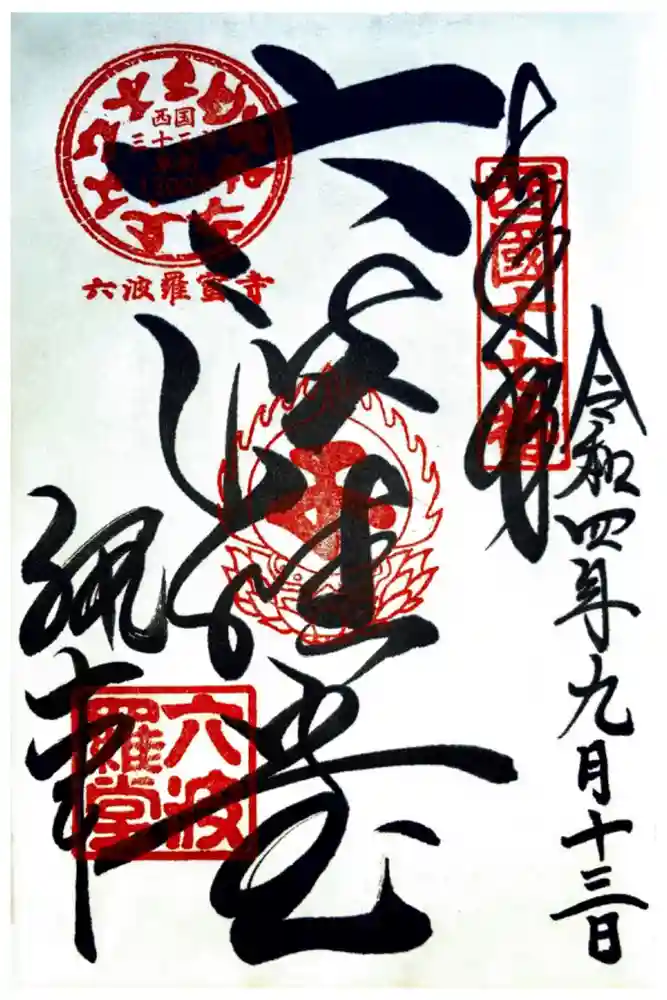 令和四年九月十三日
奉拝
西國十七番
六波羅堂
西国
六波羅蜜寺
執事
六波
羅堂